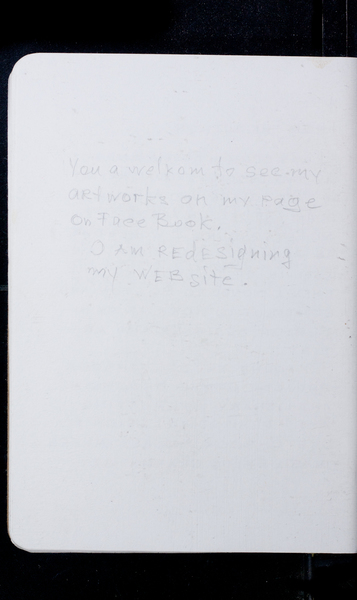 You a welkom to see my
artworks on my page
on Face Book.
I AM REdESigning
my WEBsite.